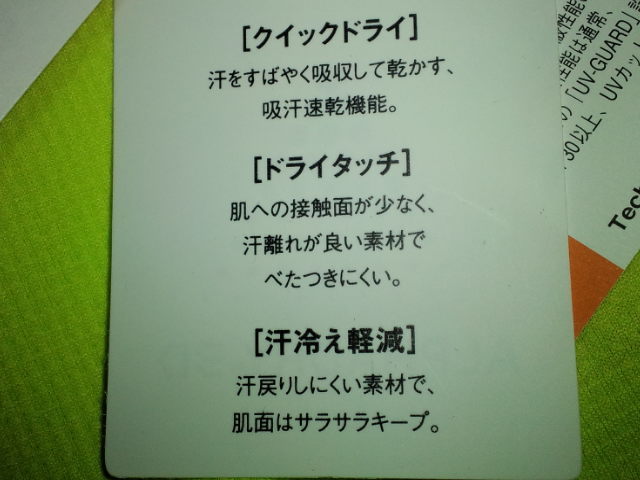 [クイックドライ]
汗をすばやく吸収して乾かす、
吸汗速乾機能。
[ドライタッチ]
肌への接触面が少なく、
汗離れが良い素材で
べたつきにくい。
[汗冷え軽減]
汗戻りしにくい素材で、
肌面はサラサラキープ。
性能は通常、
の「UV-GUARD」
30以上、UVカッ
Tech